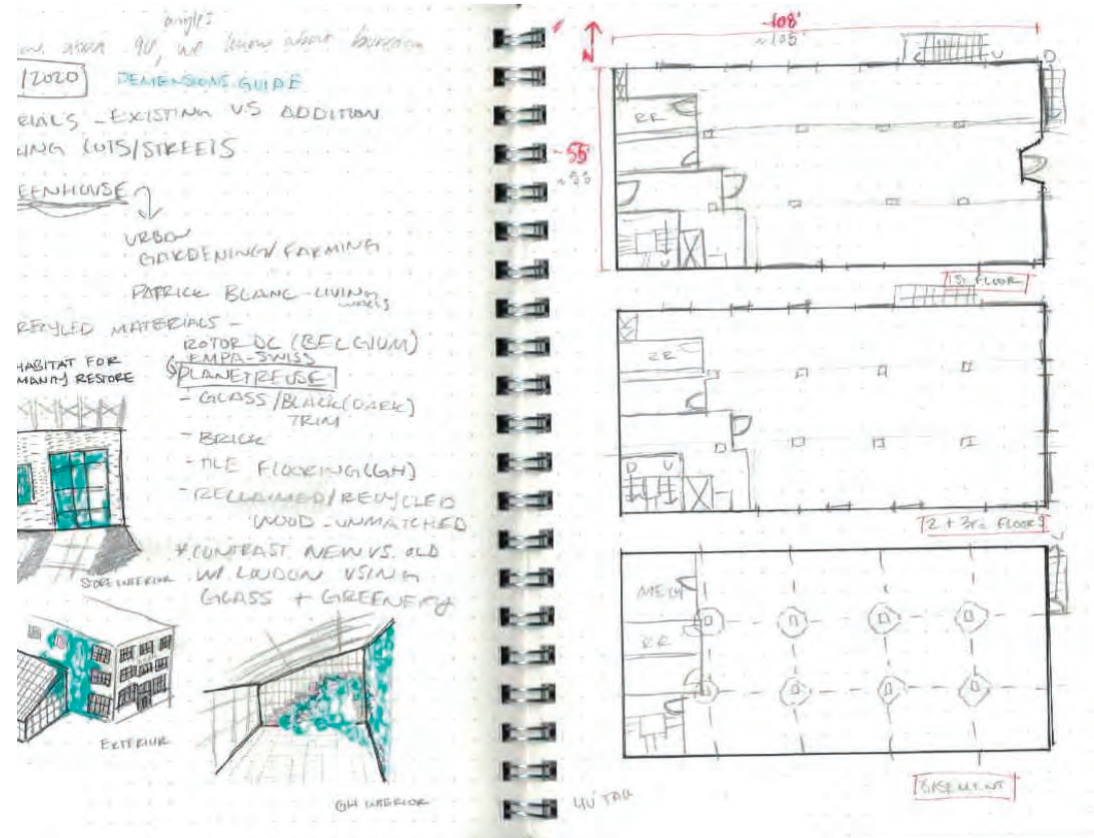 angles
90, we know about
/2020 DEMENSIONS GUIDE
RIALS - EXISTING VS ADDITION
KING LOTS/STREETS
EENHOUSE
URBAN
GARDENING/FARMING
PATRICK BLANC - LIVING
WALLS
RECYCLED MATERIALS -
ROTOR DC (BELGIUM)
EMPA-SWISS
PLANETREUSE
HABITAT FOR
MANITY RESTORE
- GLASS/BLACK (DARK)
TRIM
- BRICK
- TILE FLOORING (GH)
- RECLAIMED/RECYCLED
WOOD - UNMATCHED
* CONTRAST NEW VS. OLD
W/ LOUDON USING
GLASS + GREENERY
STORE INTERIOR
EXTERIOR
GH INTERIOR
N
108'
~105'
55'
C U D
RR
U
1ST FLOOR
RR
D U
2 + 3rd FLOORS
U
MECH
RR
BASEMENT